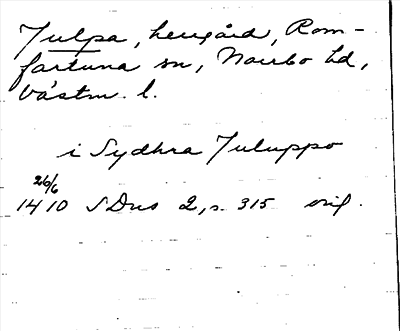 Julpa, herrgård, Rom-
fartuna sn, Norrbo hd,
Västm. l.
i Sydhra Juluppo
26/6
1410 SDns 2, s. 315 orig.